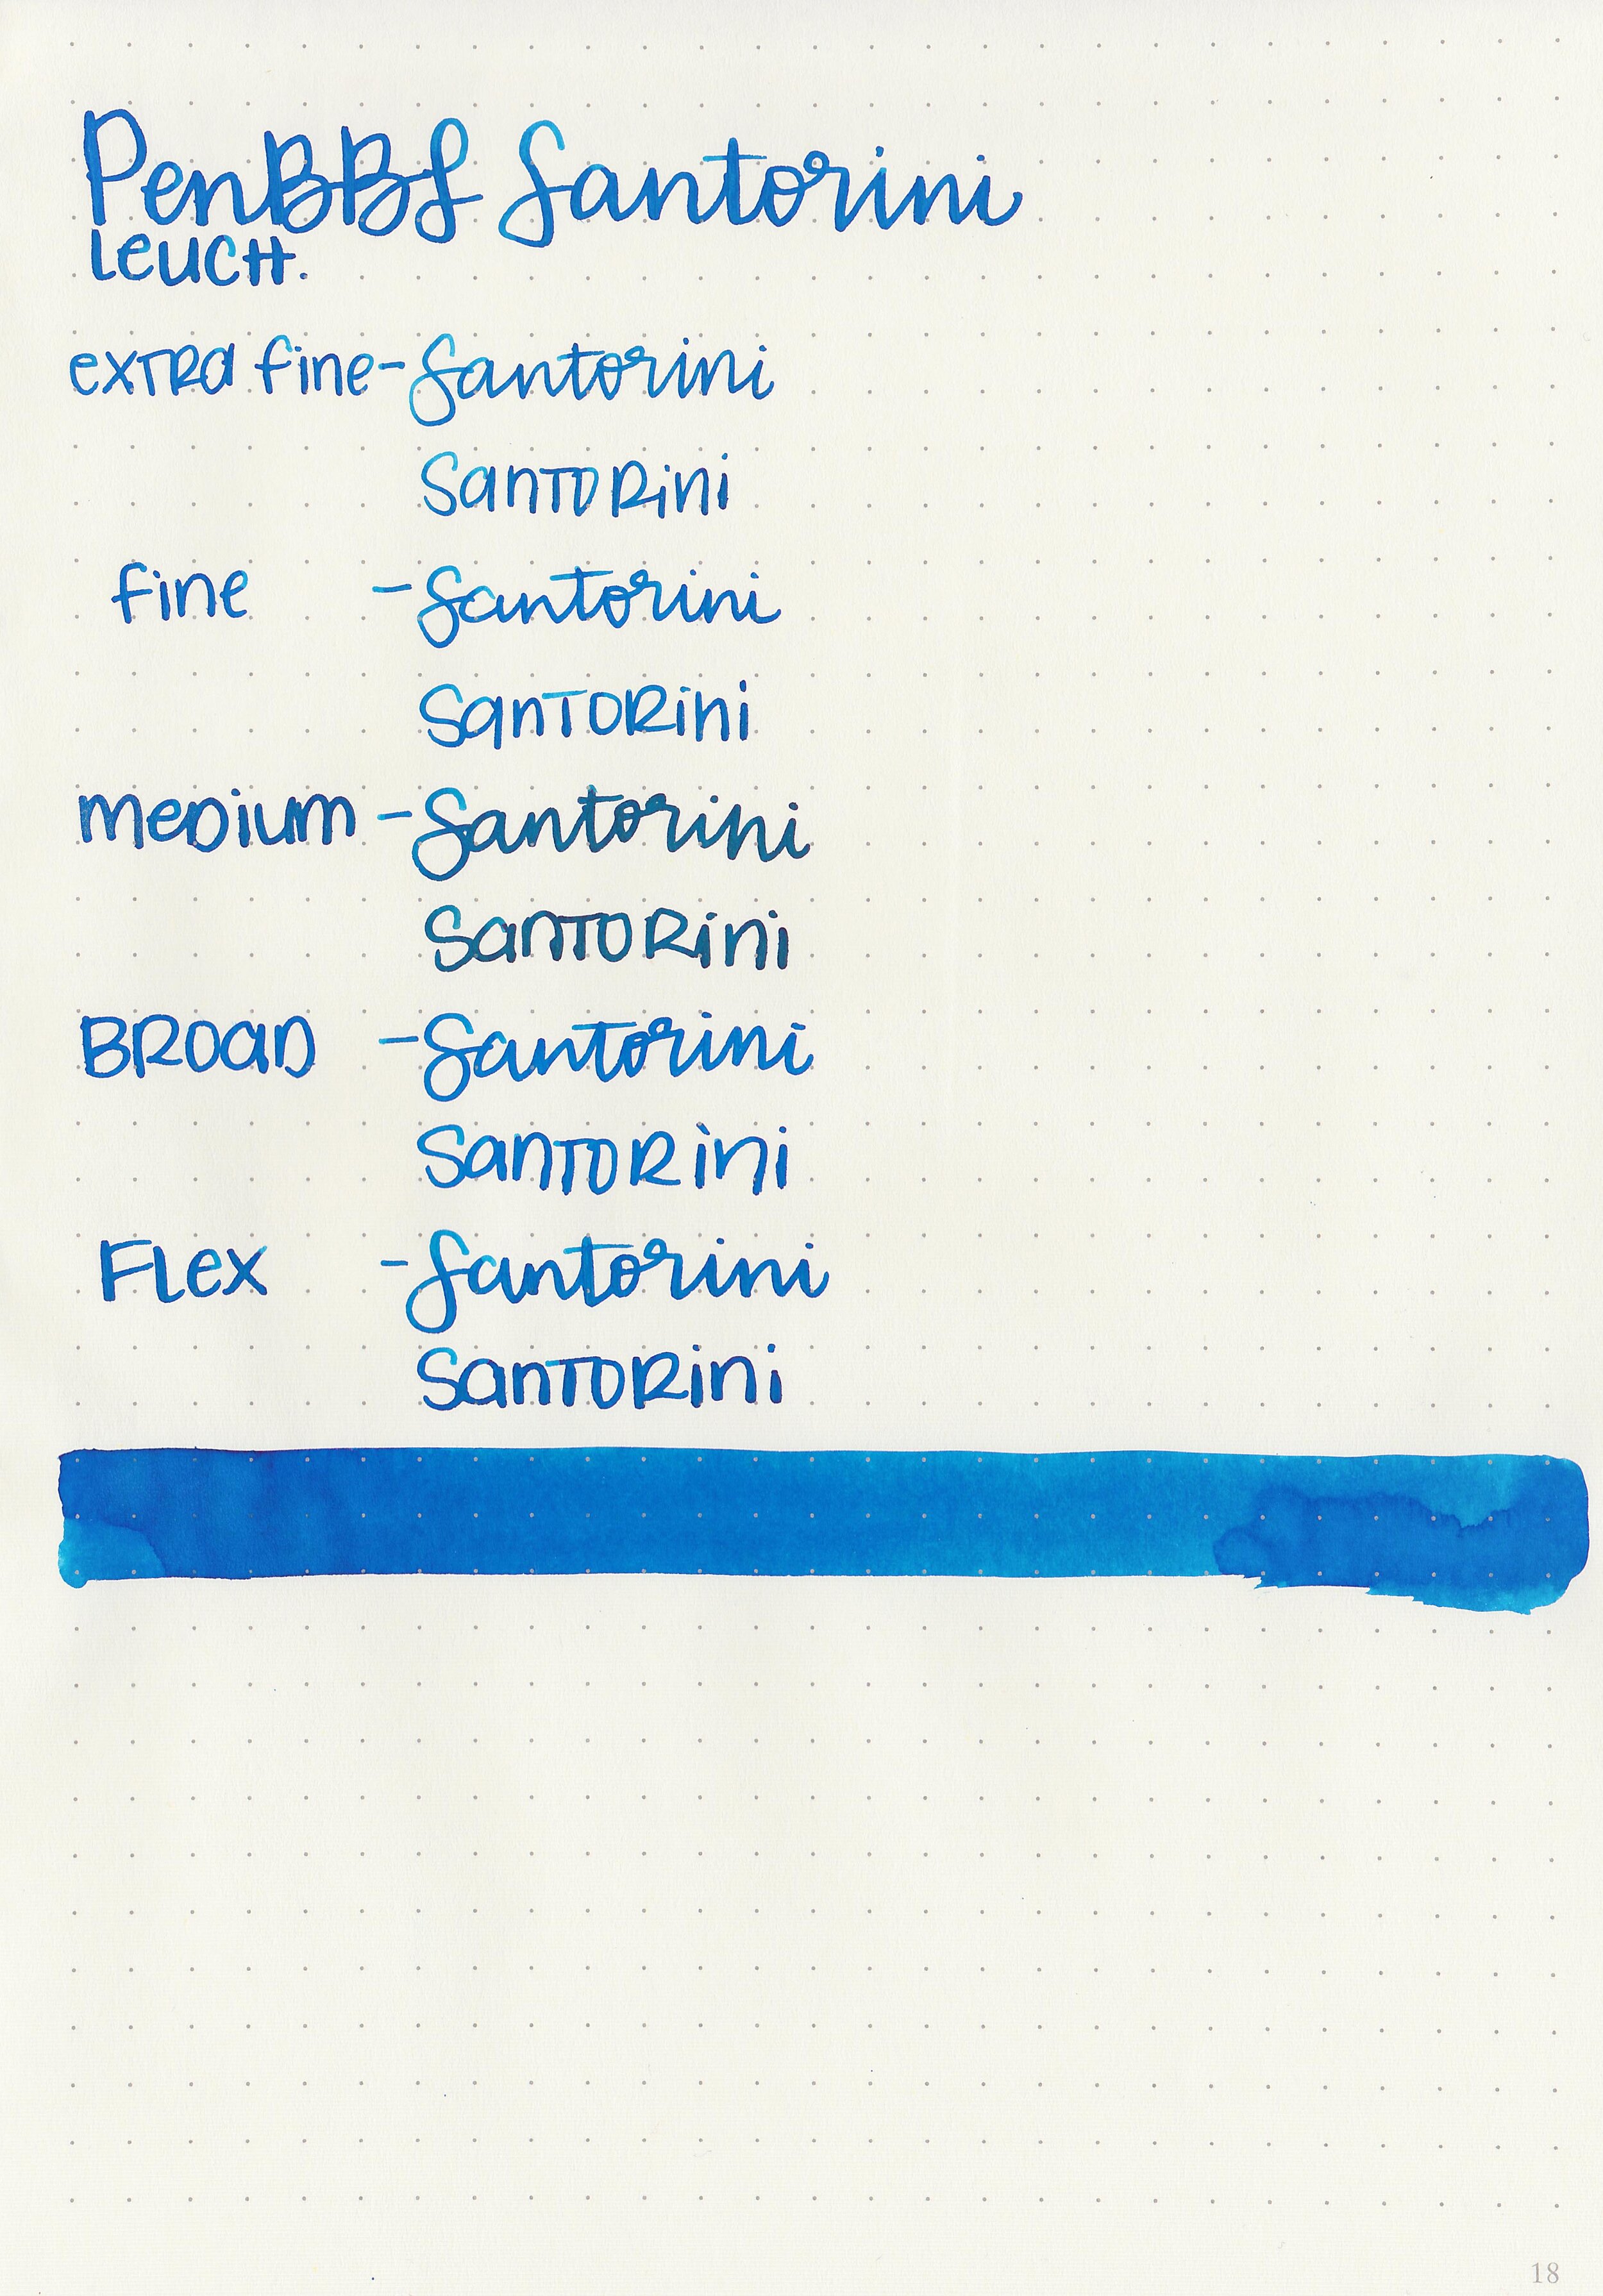 PenBBS Santorini
Leucht.
extra fine - Santorini
Santorini
fine - Santorini
Santorini
medium - Santorini
Santorini
Broad - Santorini
Santorini
Flex - Santorini
Santorini
18